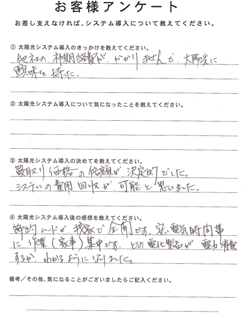 お客様アンケート
お差し支えなければ、システム導入について教えてください。
① 太陽光システム導入のきっかけを教えてください。
他社の初期経費が、かかりませんで、太陽光に
興味を持った。
② 太陽光システム導入について気になったことを教えてください。
③ 太陽光システム導入の決めてを教えてください。
買取り価格の 決定的でした。
システムの費用回収が可能と思いました。
④ 太陽光システム導入後の感想を教えてください。
我家で です。 電気時間帯
に (家事)集中です。どの電化製品が電力消費
するか、わかるようになりました。
備考/その他、気になることがございましたらご記入ください。